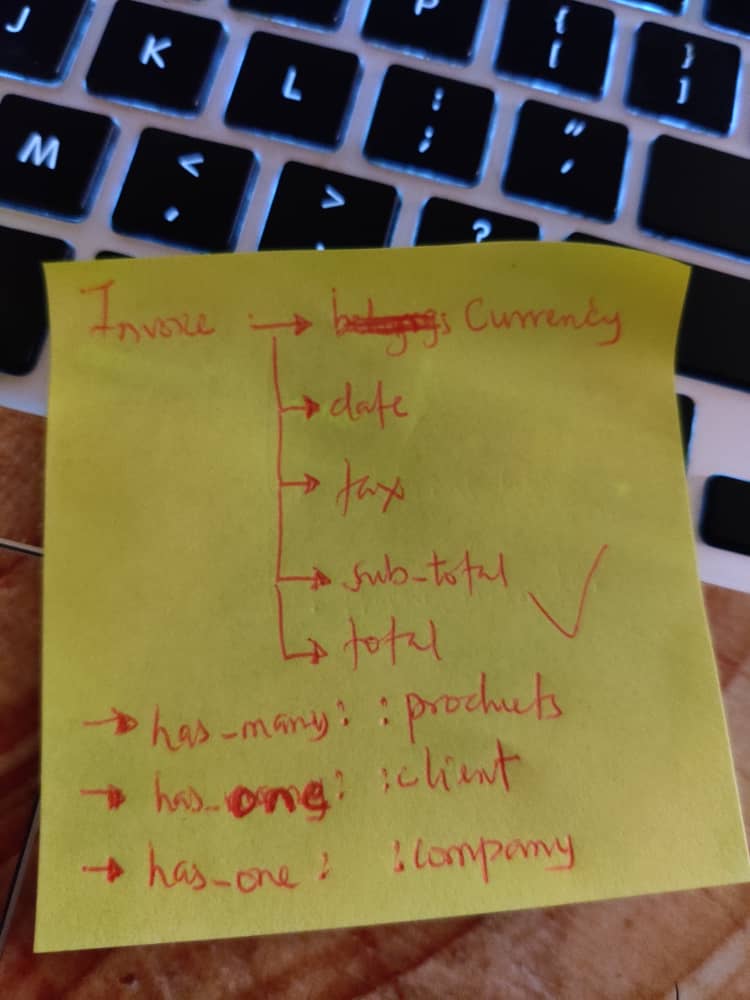 J
K L : ; P { [ } ]
M < . > ? " '
Invoice → Currency
→ date
→ tax
→ sub-total ✓
→ total
→ has_many: :products
→ has_one: :client
→ has_one: :company